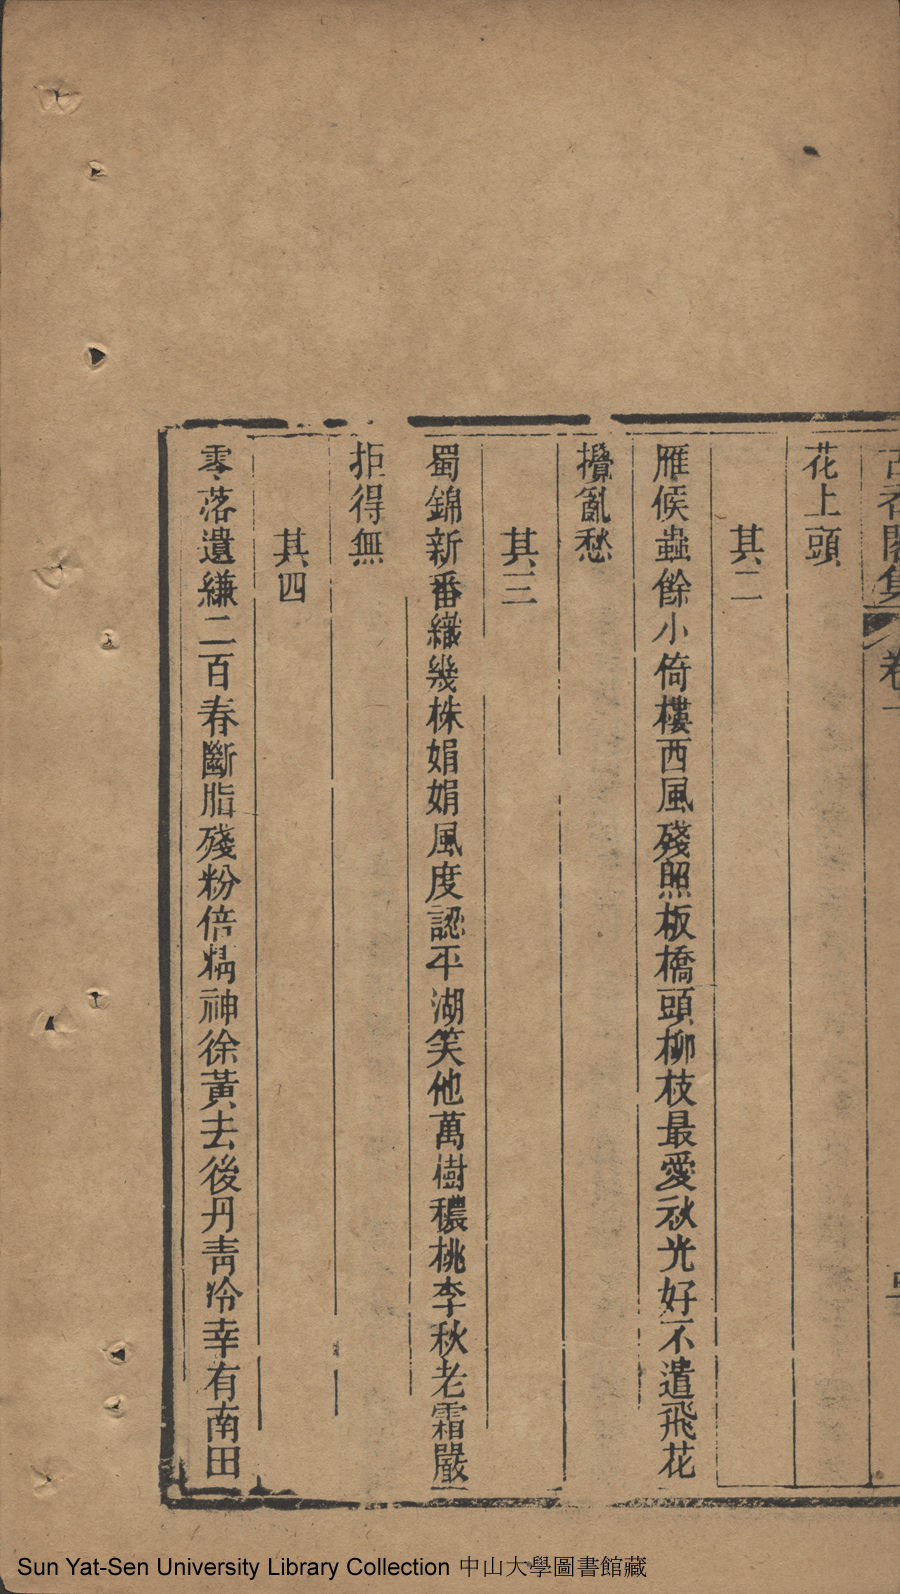 古香閣集 卷一
花上頭
其二
雁候蟲餘小倚樓西風殘照板橋頭柳枝最愛秋光好不遣飛花
攪亂愁
其三
蜀錦新番織幾株娟娟風度認平湖笑他萬樹穠桃李秋老霜嚴
拒得無
其四
零落遺縑二百春斷脂殘粉倍精神徐黃去後丹青冷幸有南田
Sun Yat-Sen University Library Collection 中山大學圖書館藏